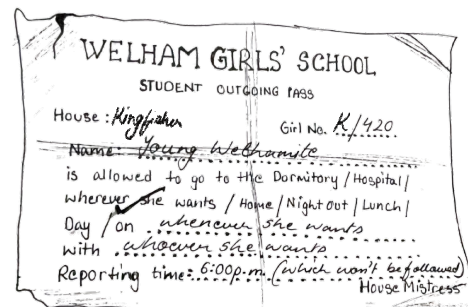 WELHAM GIRLS' SCHOOL
STUDENT OUTGOING PASS
House: Kingfisher
Girl No. K/420
Name: Young Welhamite
is allowed to go to the Dormitory / Hospital /
wherever she wants / Home / Night Out / Lunch /
Day / on whenever she wants
with whoever she wants
Reporting time: 6:00p.m. (which won't be followed)
House Mistress